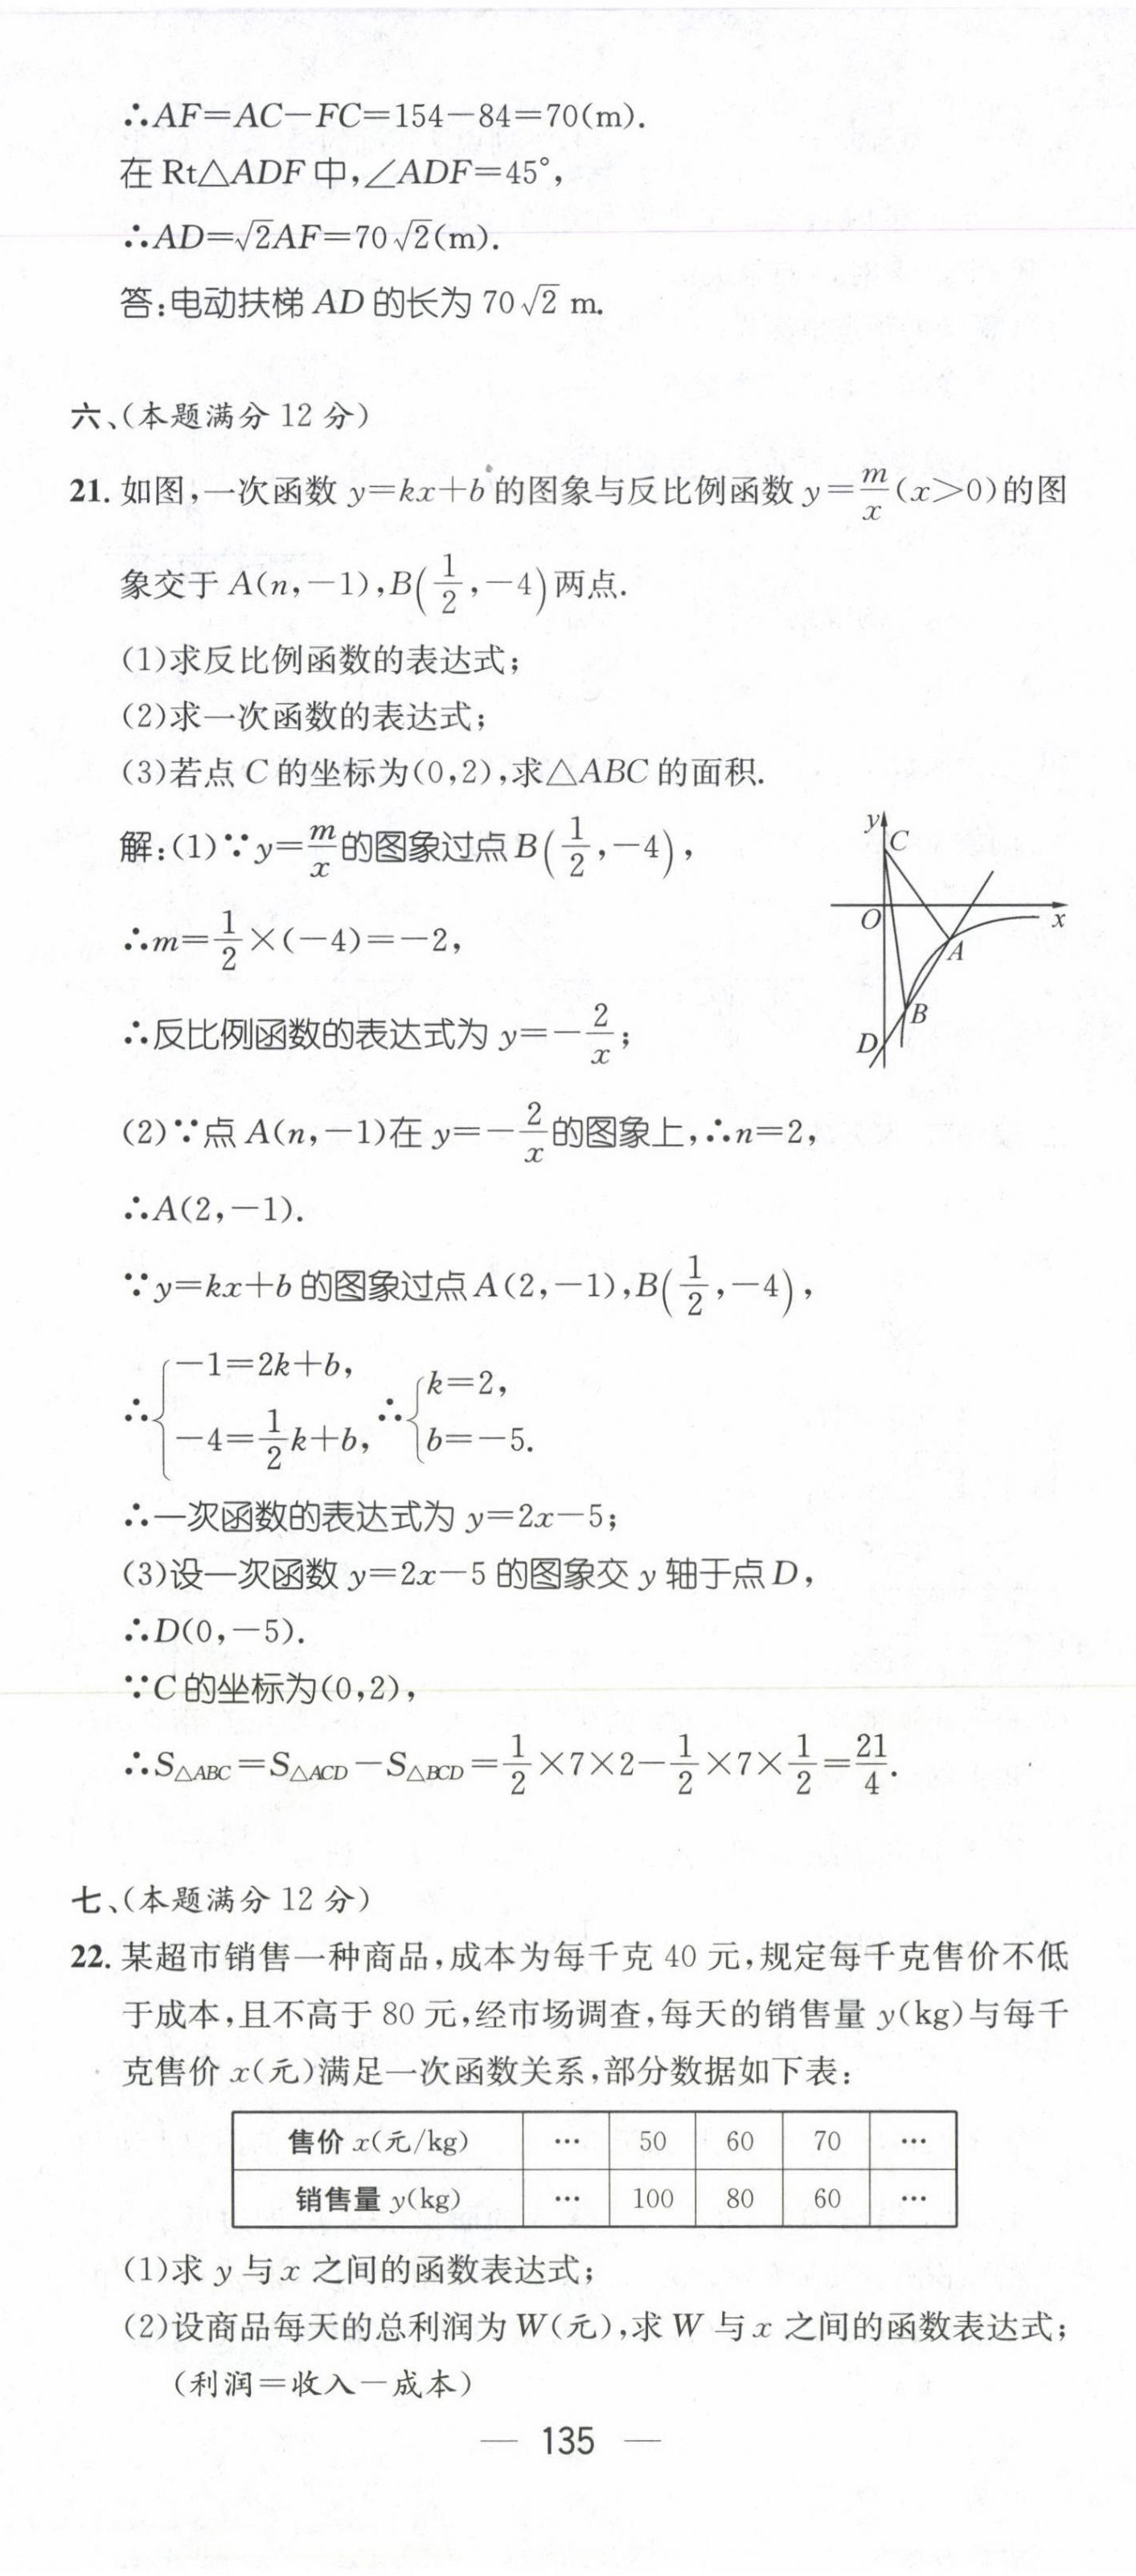 ∴AF=AC−FC=154−84=70(m).
在 Rt△ADF 中,∠ADF=45°,
∴AD=√2AF=70√2(m).
答:电动扶梯 AD 的长为 70√2 m.
六、(本题满分 12 分)
21. 如图,一次函数 y=kx+b 的图象与反比例函数 y=m/x(x>0)的图
象交于 A(n,−1),B(1/2,−4)两点.
(1)求反比例函数的表达式;
(2)求一次函数的表达式;
(3)若点 C 的坐标为(0,2),求△ABC 的面积.
解:(1)∵y=m/x的图象过点 B(1/2,−4),
∴m=1/2×(−4)=−2,
∴反比例函数的表达式为 y=−2/x;
y
C
O
x
A
B
D
(2)∵点 A(n,−1)在 y=−2/x的图象上,∴n=2,
∴A(2,−1).
∵y=kx+b 的图象过点 A(2,−1),B(1/2,−4),
∴{−1=2k+b, −4=1/2k+b, ∴{k=2, b=−5.
∴一次函数的表达式为 y=2x−5;
(3)设一次函数 y=2x−5 的图象交 y 轴于点 D,
∴D(0,−5).
∵C 的坐标为(0,2),
∴S△ABC=S△ACD−S△BCD=1/2×7×2−1/2×7×1/2=21/4.
七、(本题满分 12 分)
22. 某超市销售一种商品,成本为每千克 40 元,规定每千克售价不低
于成本,且不高于 80 元,经市场调查,每天的销售量 y(kg)与每千
克售价 x(元)满足一次函数关系,部分数据如下表:
售价 x(元/kg) … 50 60 70 …
销售量 y(kg) … 100 80 60 …
(1)求 y 与 x 之间的函数表达式;
(2)设商品每天的总利润为 W(元),求 W 与 x 之间的函数表达式;
(利润=收入−成本)
— 135 —